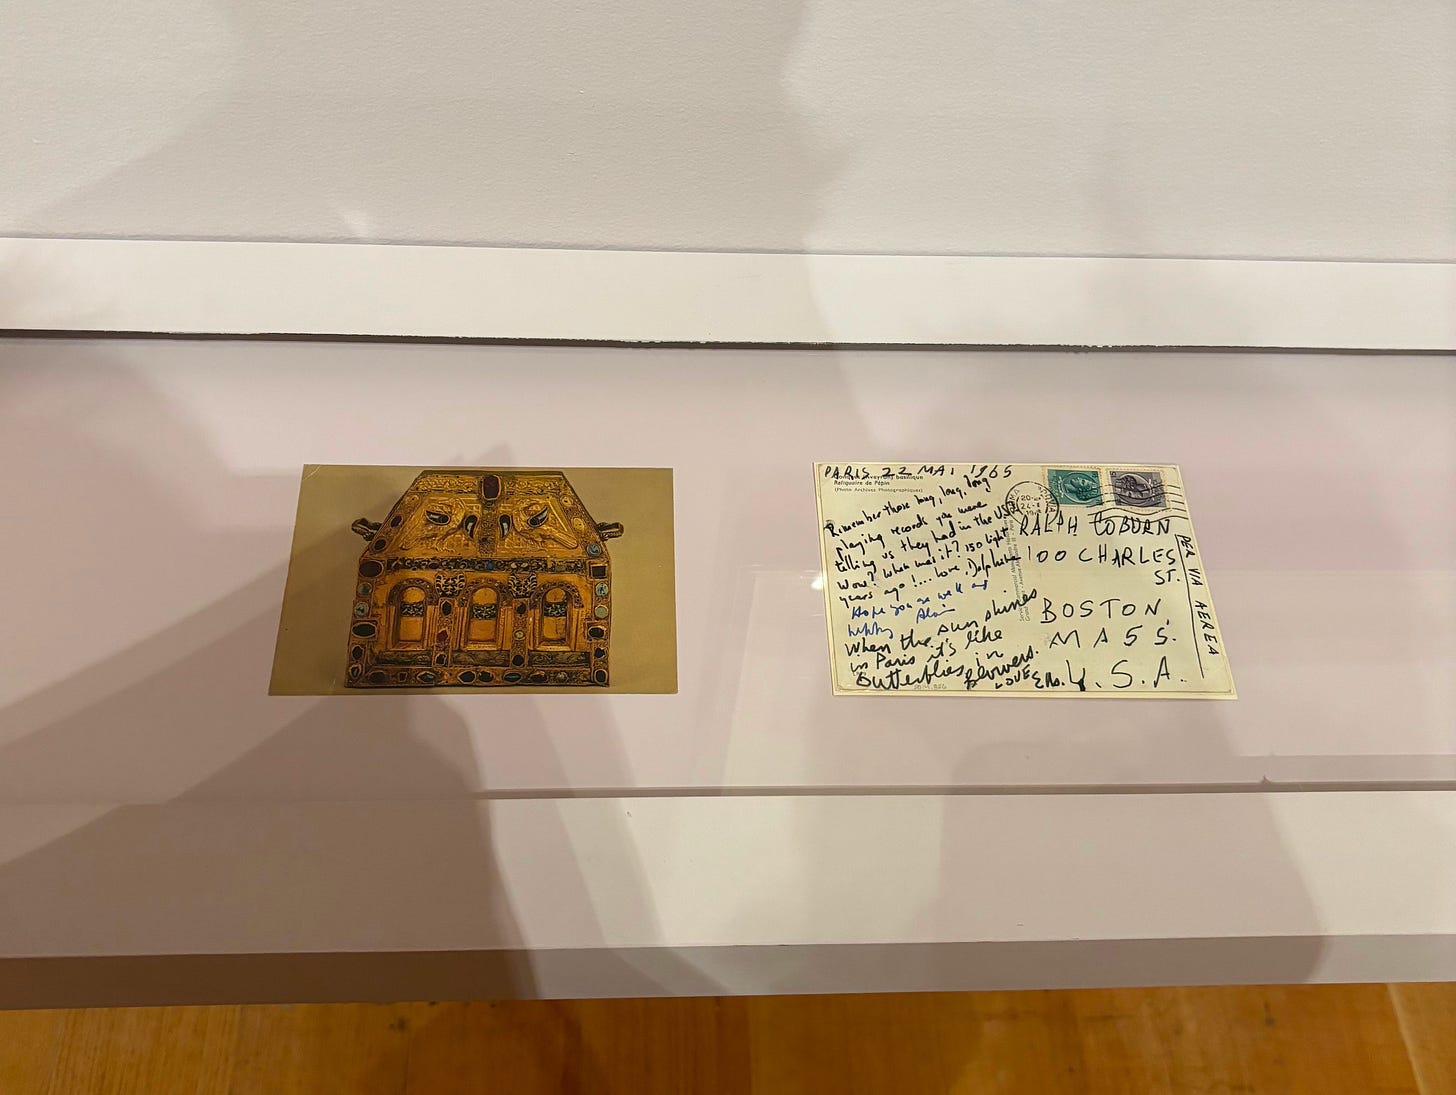 PARIS 22 MAI 1965
(Aveyron) basilique
Reliquaire de Pépin
(Photo Archives Photographiques)
Remember those long, long, long
playing records you were
telling us they had in the US?
Wow! When was it? 150 light
years ago!... love, Delphine
Hope you are well and
happy Alain
When the sun shines
in Paris it's like
Butterflies in
flowers.
LOVE
RALPH COBURN
100 CHARLES
ST.
BOSTON,
MASS.
U.S.A.
PER VIA AEREA